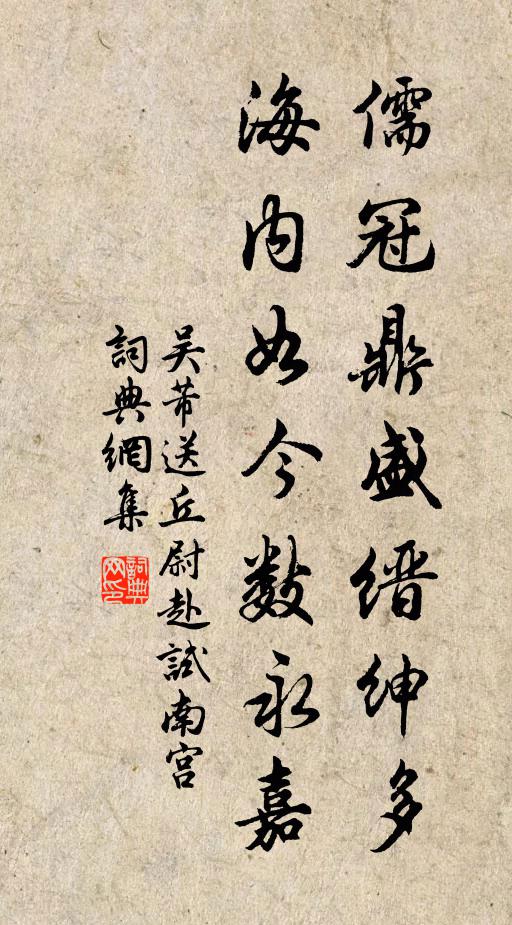 儒冠鼎盛缙绅多
海内如今数永嘉
吴芾送丘尉赴試南宫
詞典網集
詞典网印